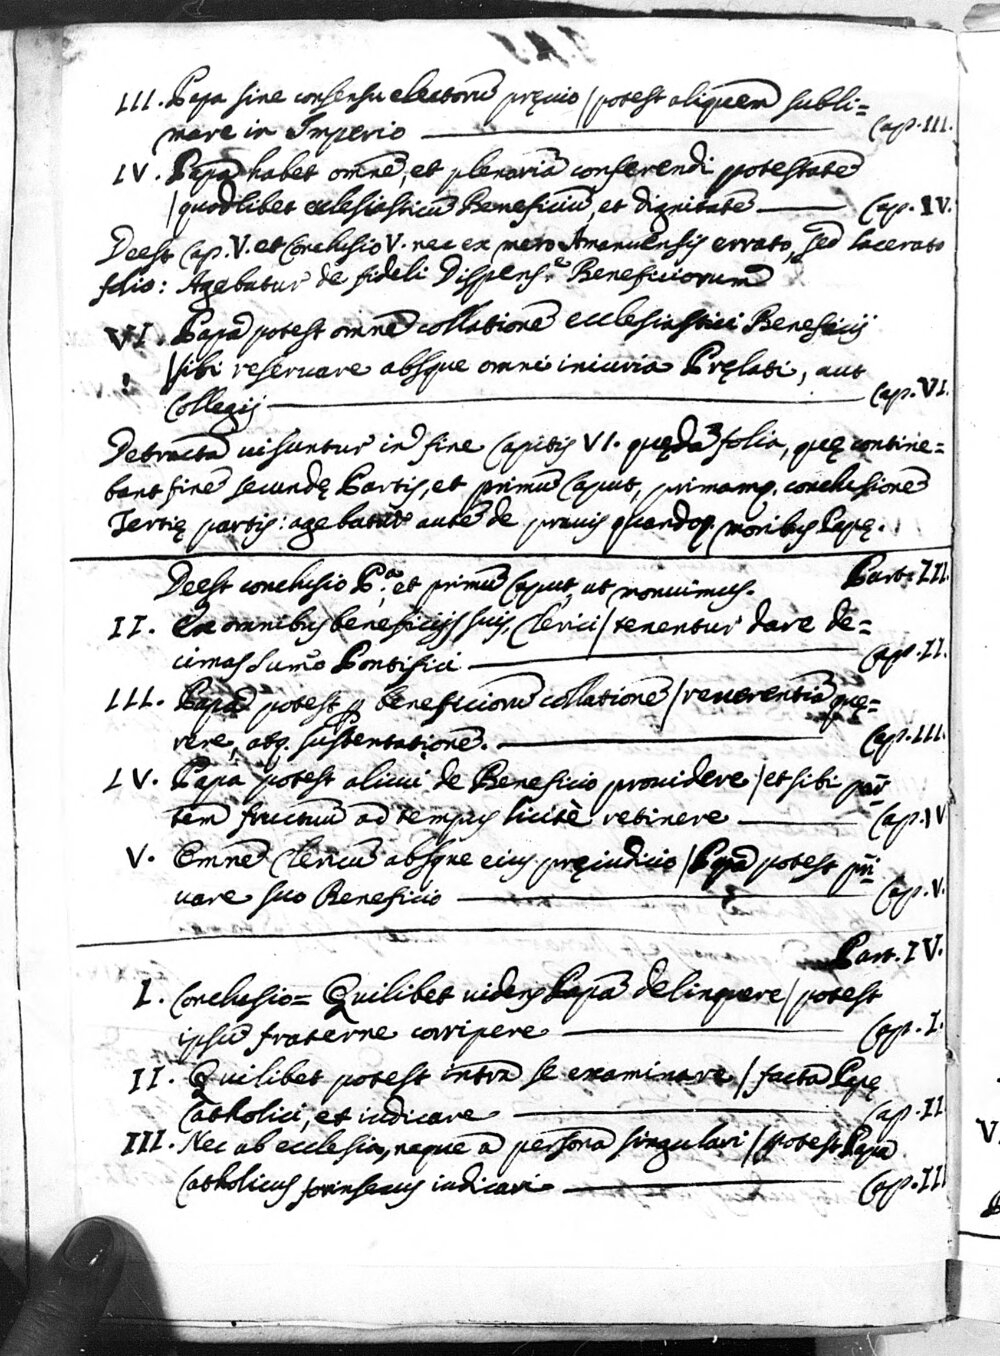 III. Papa sine consensu electorũ pręuio / potest aliquem subli=
mare in Imperio — Cap. III.
IV. Papa habet omnẽ, et plenariã conferendi potestatẽ
/ quodlibet ecclesiasticũ Beneficiũ, et dignitatẽ — Cap. IV.
Deest Cap. V. et Conclusio V. nec ex mero Amanuensis errato, sed lacerato
folio: Agebatur de fideli Dispens.e Beneficiorum
VI. Papa potest omnẽ collationẽ ecclesiastici Beneficij
/ sibi reseruare absque omni iniuria Pręlati, aut
Collegij — Cap. VI.
Detracta uisuntur in fine Capitis VI. quędã folia, quę contine=
bant finẽ secundę Partis, et primũ Caput, primamq. conclusionẽ
Tertię partis: agebatur autẽ de prauis quandoq. moribus Papę.
Part. III.
Deest conclusio P.a et primũ Caput, ut monuimus.
II. Ex omnibus beneficijs suis, Clerici / tenentur dare de=
cimas Sumo Pontifici — Cap. II.
III. Papa potest p beneficiorũ collationẽ / reuerentiã quę=
rere, atq. sustentationẽ. — Cap. III.
IV. Papa potest alicui de Beneficio prouidere / et sibi par
tem fructuũ ad tempus licitè retinere — Cap. IV
V. Omnẽ Clericũ absque eius pręiudicio / Papa potest pri
uare suo Beneficio — Cap. V.
Part. IV.
I. Conclusio= Quilibet uidens Papã delinquere / potest
ipsũ fraterne corripere — Cap. I.
II. Quilibet potest intra se examinare / facta Papę
Catholici, et iudicare — Cap. II
III. Nec ab ecclesia, neque a persona singulari / potest Papa
Catholicus forinsecus iudicari — Cap. III
V.